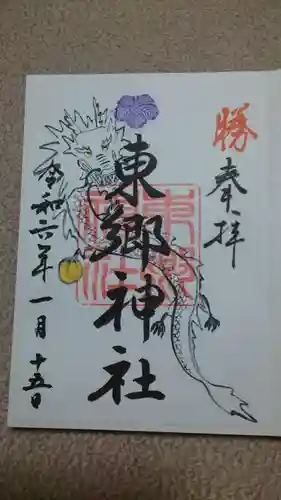 勝
奉拝
東郷神社
令和六年一月十五日